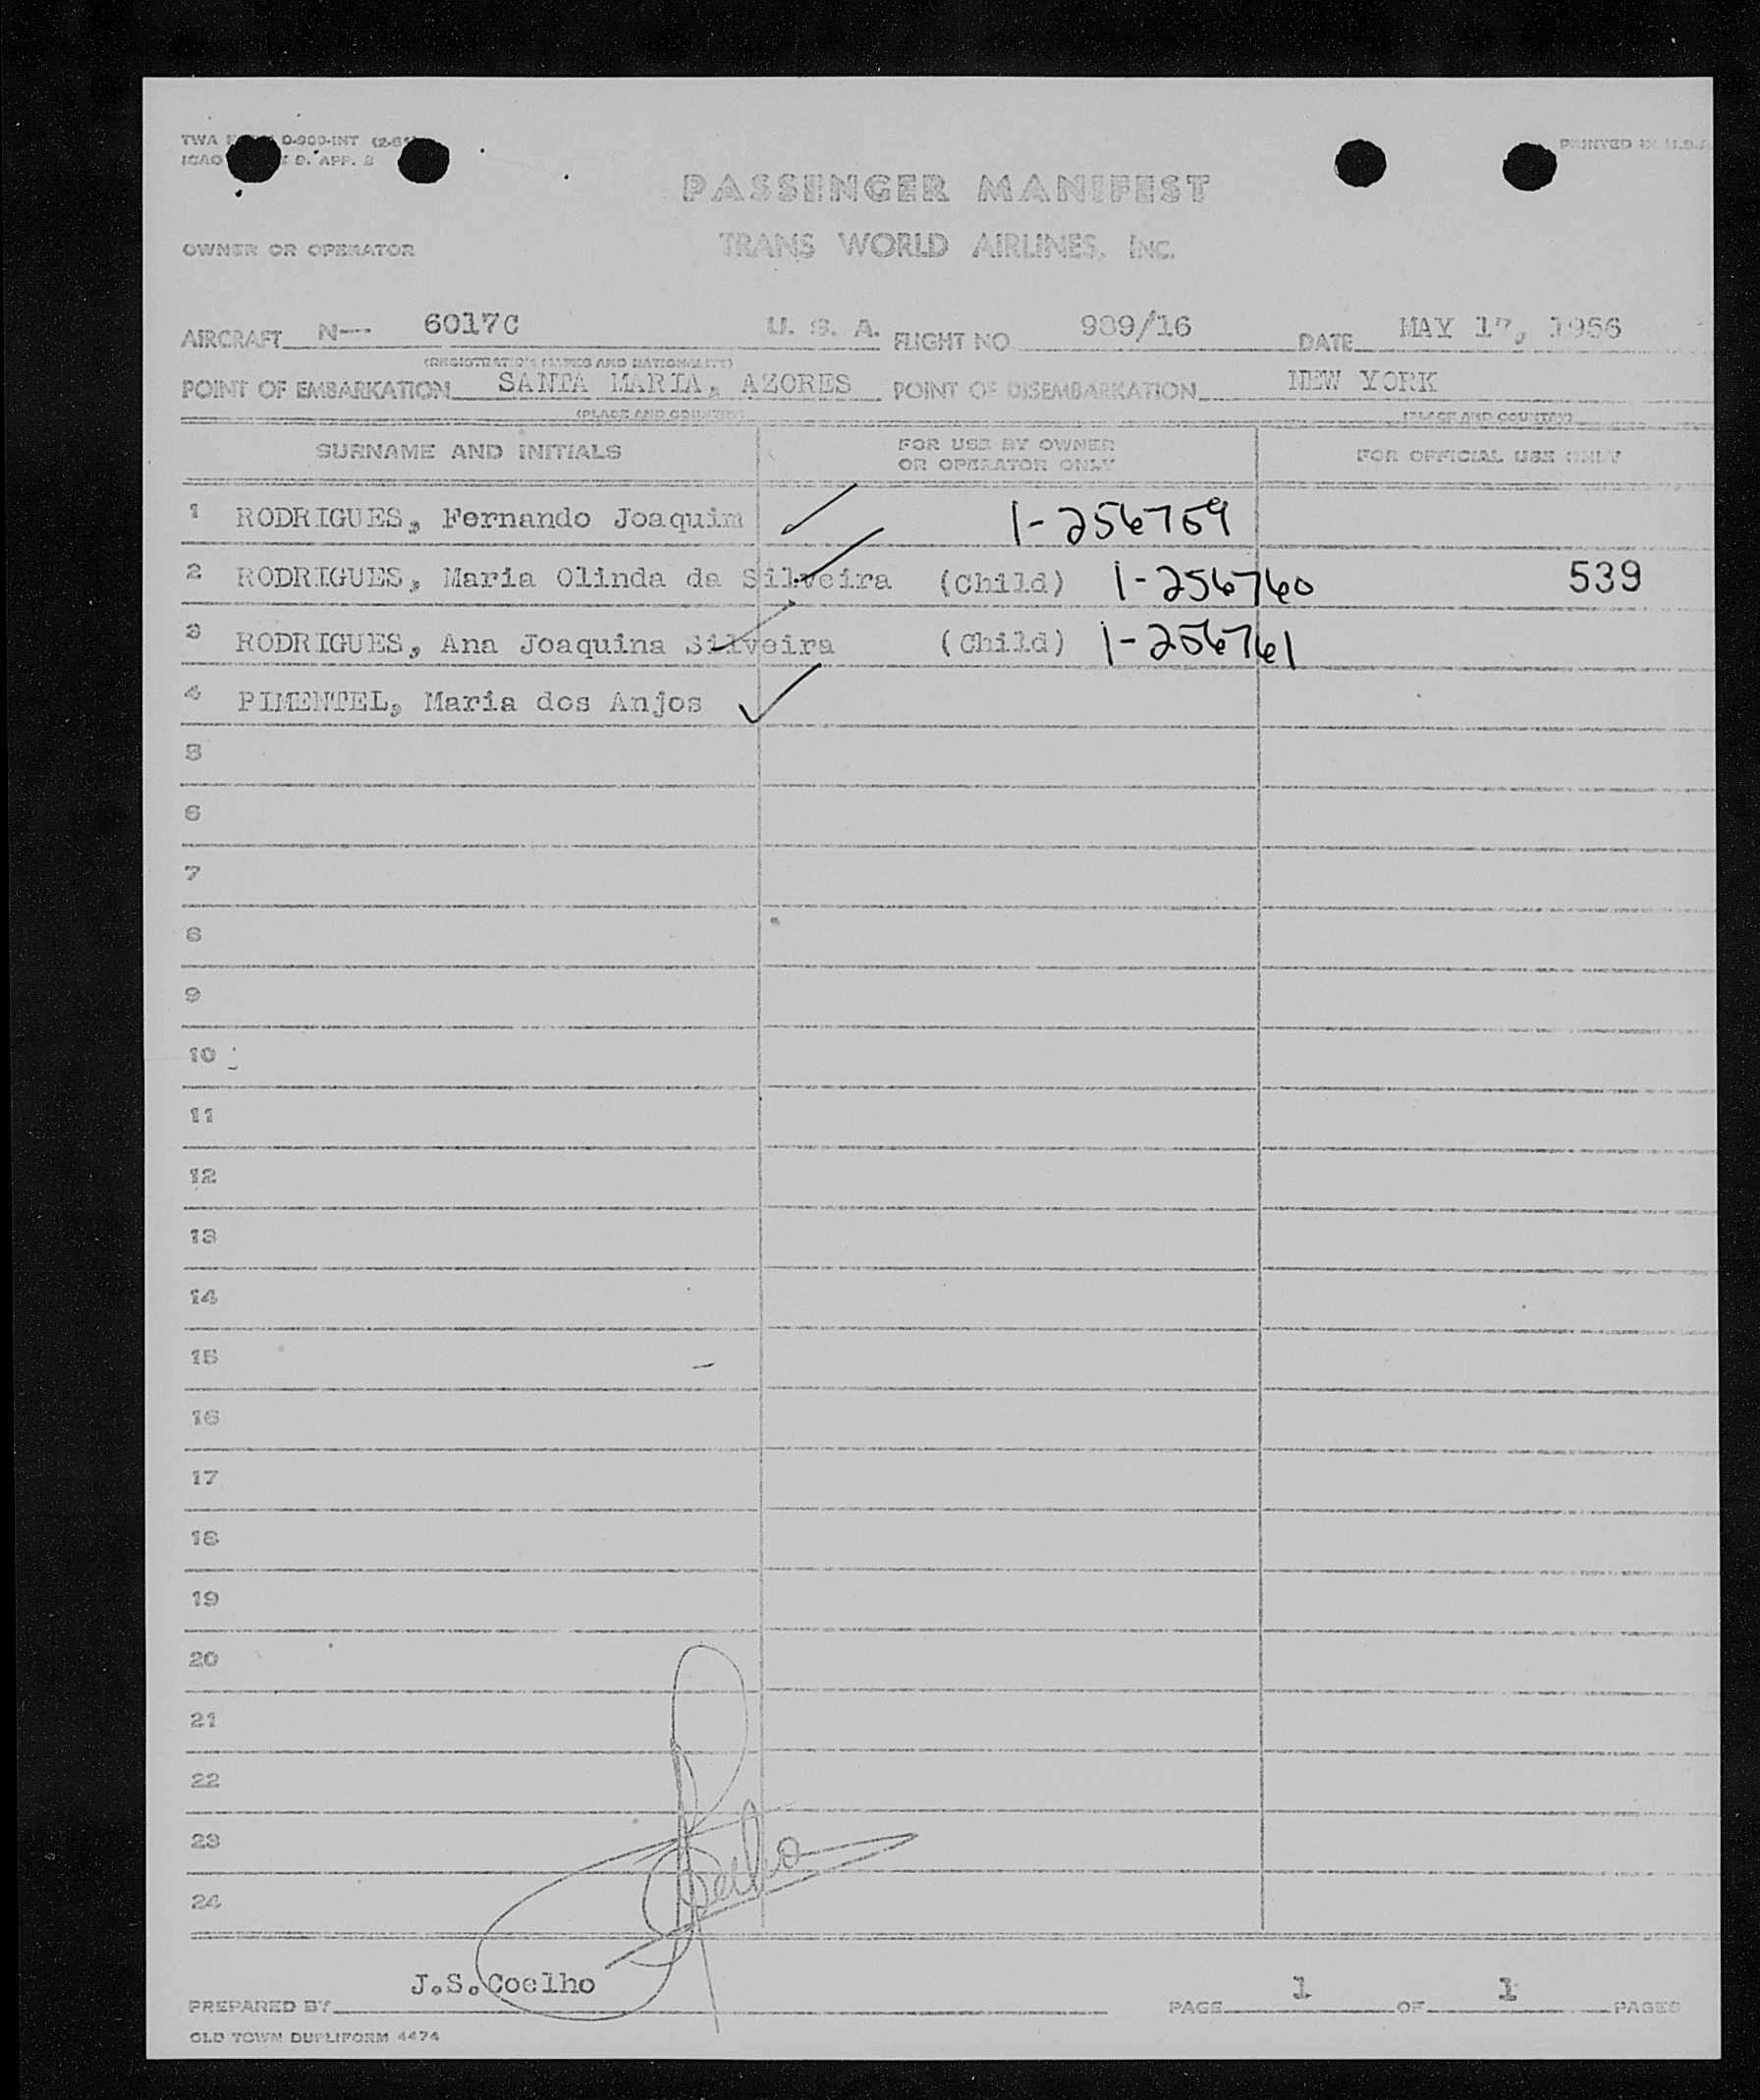 TWA D-900-INT
ICAO 9. APP. 2
PRINTED IN U.S.A.
PASSENGER MANIFEST
OWNER OR OPERATOR
TRANS WORLD AIRLINES, INC.
AIRCRAFT N-- 6017C U. S. A. FLIGHT NO 989/16 DATE MAY 17, 1956
(REGISTRATION MARKS AND NATIONALITY)
POINT OF EMBARKATION SANTA MARIA, AZORES POINT OF DISEMBARKATION NEW YORK
(PLACE AND COUNTRY) (PLACE AND COUNTRY)
SURNAME AND INITIALS FOR USE BY OWNER OR OPERATOR ONLY FOR OFFICIAL USE ONLY
1 RODRIGUES, Fernando Joaquim 1-256759
2 RODRIGUES, Maria Olinda da Silveira (Child) 1-256760 539
3 RODRIGUES, Ana Joaquina Silveira (Child) 1-256761
4 PIMENTEL, Maria dos Anjos
5
6
7
8
9
10
11
12
13
14
15
16
17
18
19
20
21
22
23
24
Coelho
J.S.Coelho
PREPARED BY PAGE 1 OF 1 PAGES
OLD TOWN DUPLIFORM 4474